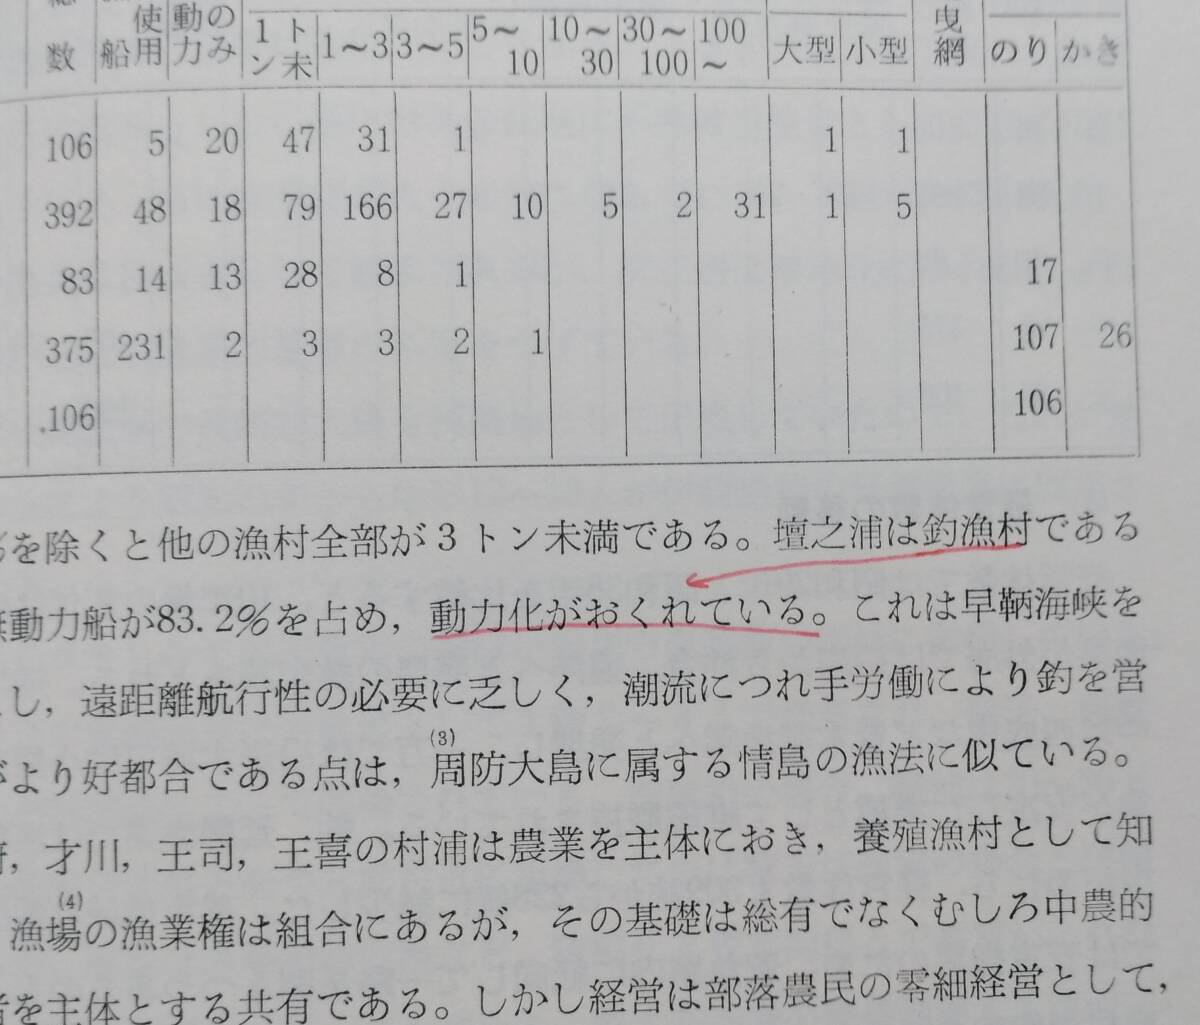 数 船使用 動力のみ 1トン未 1〜3 3〜5 5〜10 10〜30 30〜100 100〜 大型 小型 曳網 のり かき
106 5 20 47 31 1 1 1
392 48 18 79 166 27 10 5 2 31 1 5
83 14 13 28 8 1 17
375 231 2 3 3 2 1 107 26
.106 106
を除くと他の漁村全部が3トン未満である。壇之浦は釣漁村である
動力船が83.2%を占め，動力化がおくれている。これは早鞆海峡を
し，遠距離航行性の必要に乏しく，潮流につれ手労働により釣を営
がより好都合である点は，周防大島に属する情島の漁法に似ている。(3)
，才川，王司，王喜の村浦は農業を主体におき，養殖漁村として知
漁場の漁業権は組合にあるが，その基礎は総有でなくむしろ中農的(4)
を主体とする共有である。しかし経営は部落農民の零細経営として，